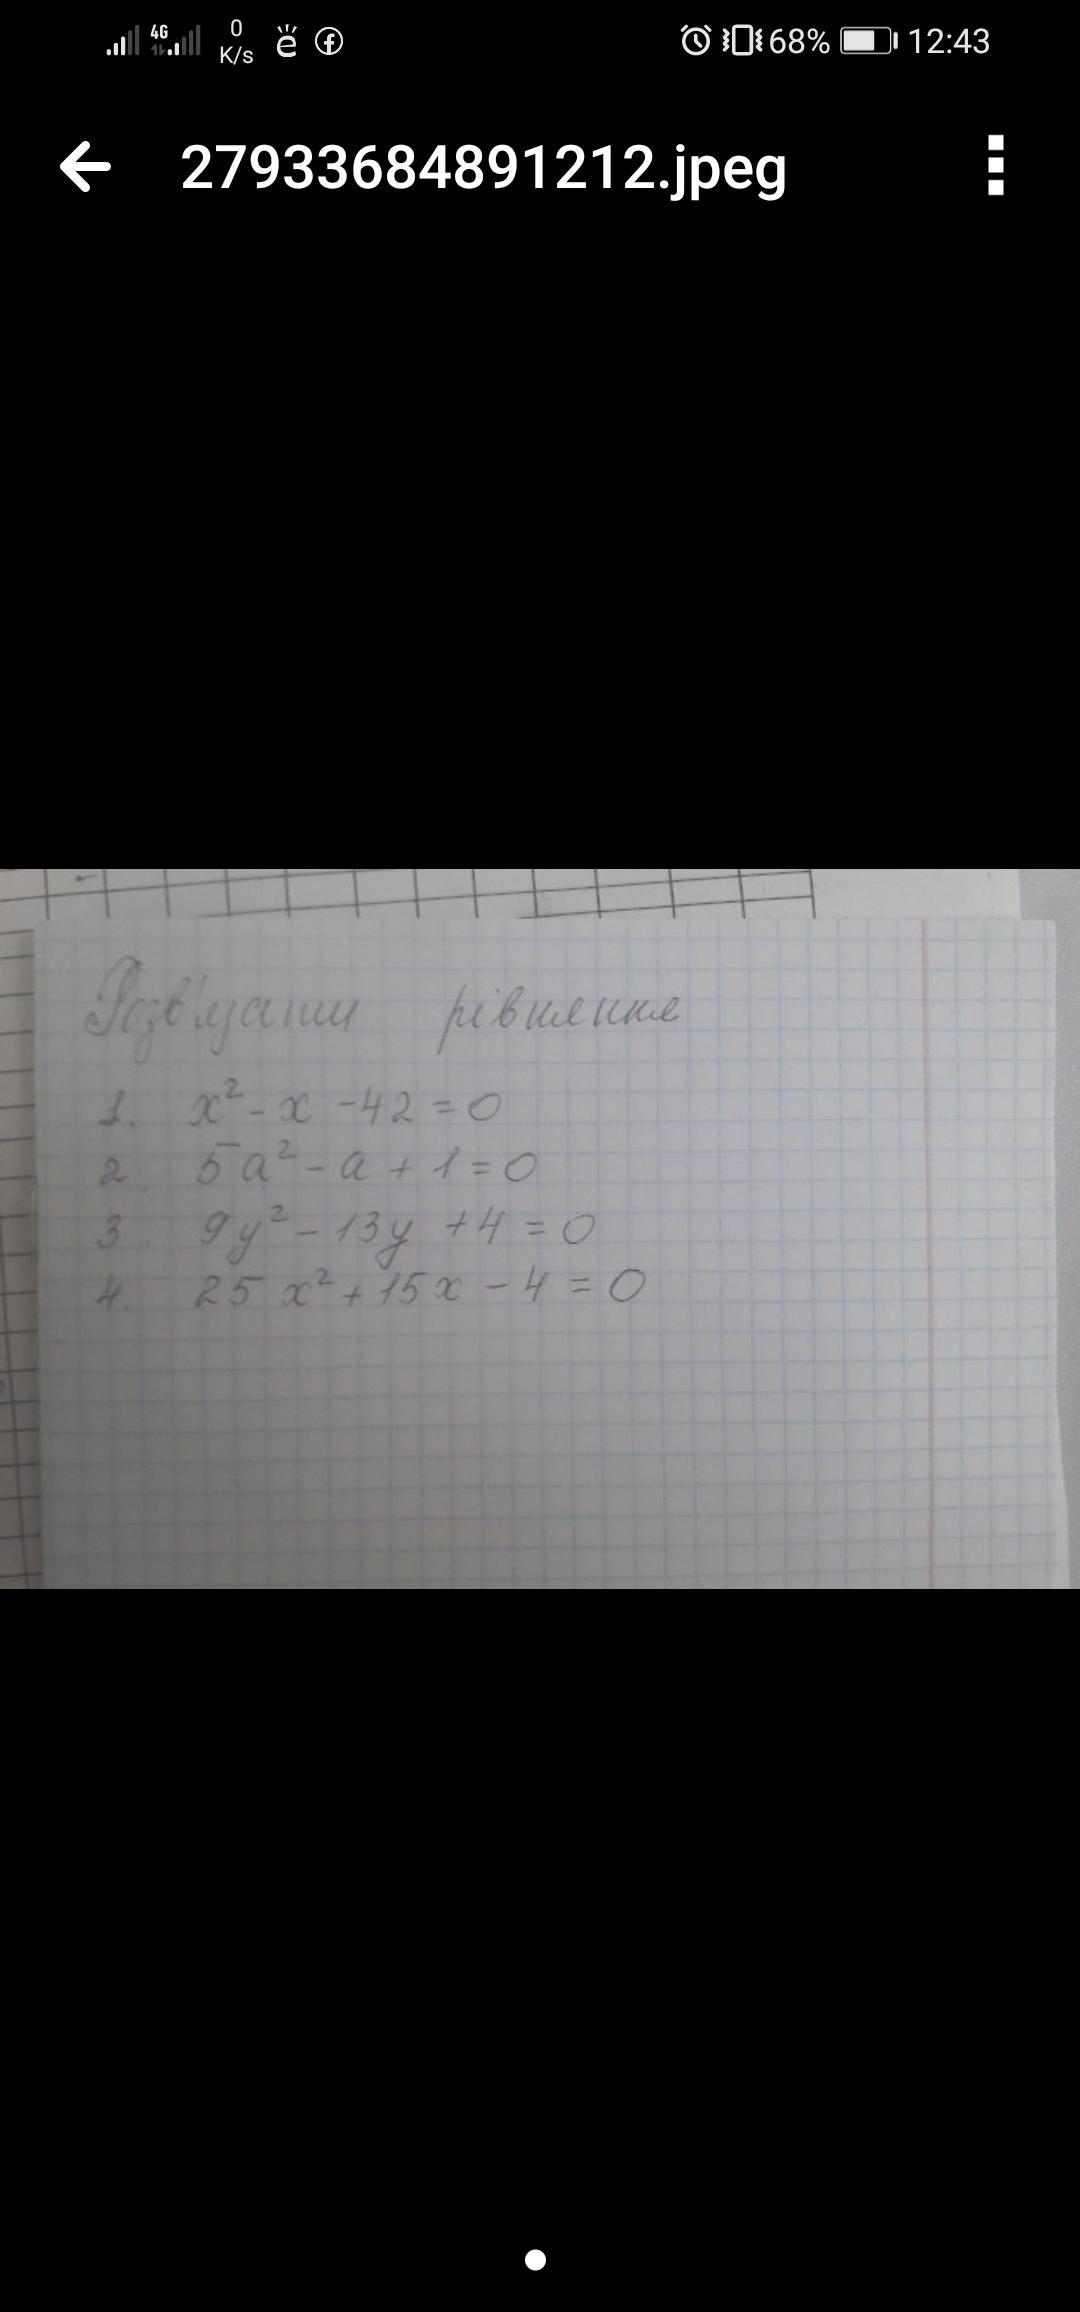 4G 0 K/s 68% 12:43
27933684891212.jpeg
Розв'язати рівняння
1. x² - x - 42 = 0
2. 5a² - a + 1 = 0
3. 9y² - 13y + 4 = 0
4. 25x² + 15x - 4 = 0